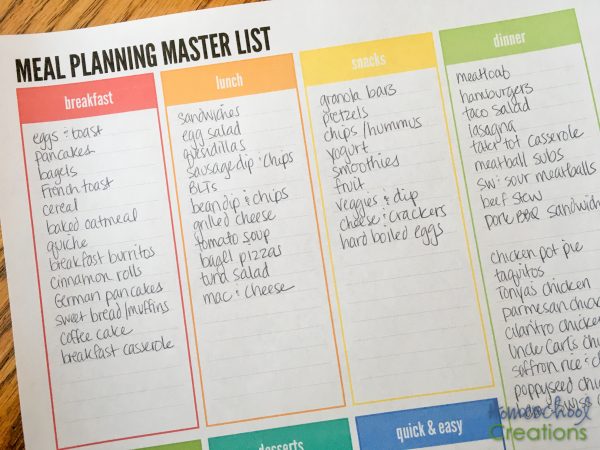 MEAL PLANNING MASTER LIST
breakfast
eggs & toast
pancakes
bagels
French toast
cereal
baked oatmeal
quiche
breakfast burritos
cinnamon rolls
German pancakes
sweet bread/muffins
coffee cake
breakfast casserole
lunch
sandwiches
egg salad
quesidillas
sausage dip & chips
BLTs
bean dip & chips
grilled cheese
tomato soup
bagel pizzas
tuna salad
mac & cheese
snacks
granola bars
pretzels
chips/hummus
yogurt
smoothies
fruit
veggies & dip
cheese & crackers
hard boiled eggs
dinner
meatloaf
hamburgers
taco salad
lasagna
tater tot casserole
meatball subs
sw & sour meatballs
beef stew
pork BBQ sandwich
chicken pot pie
taquitos
Tonya's chicken
parmesan chicken
cilantro chicken
Uncle Carl's
saffron rice &
poppyseed
desserts
quick & easy
Homeschool
Creations